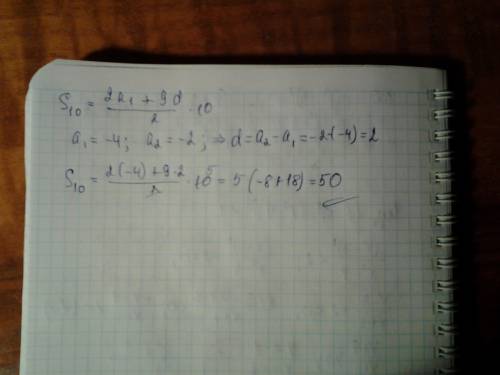 S₁₀ = (2a₁ + 9d)/2 · 10
a₁ = -4; a₂ = -2; ⇒ d = a₂ - a₁ = -2-(-4) = 2
S₁₀ = (2(-4) + 9·2)/2 · 10⁵ = 5(-8+18) = 50